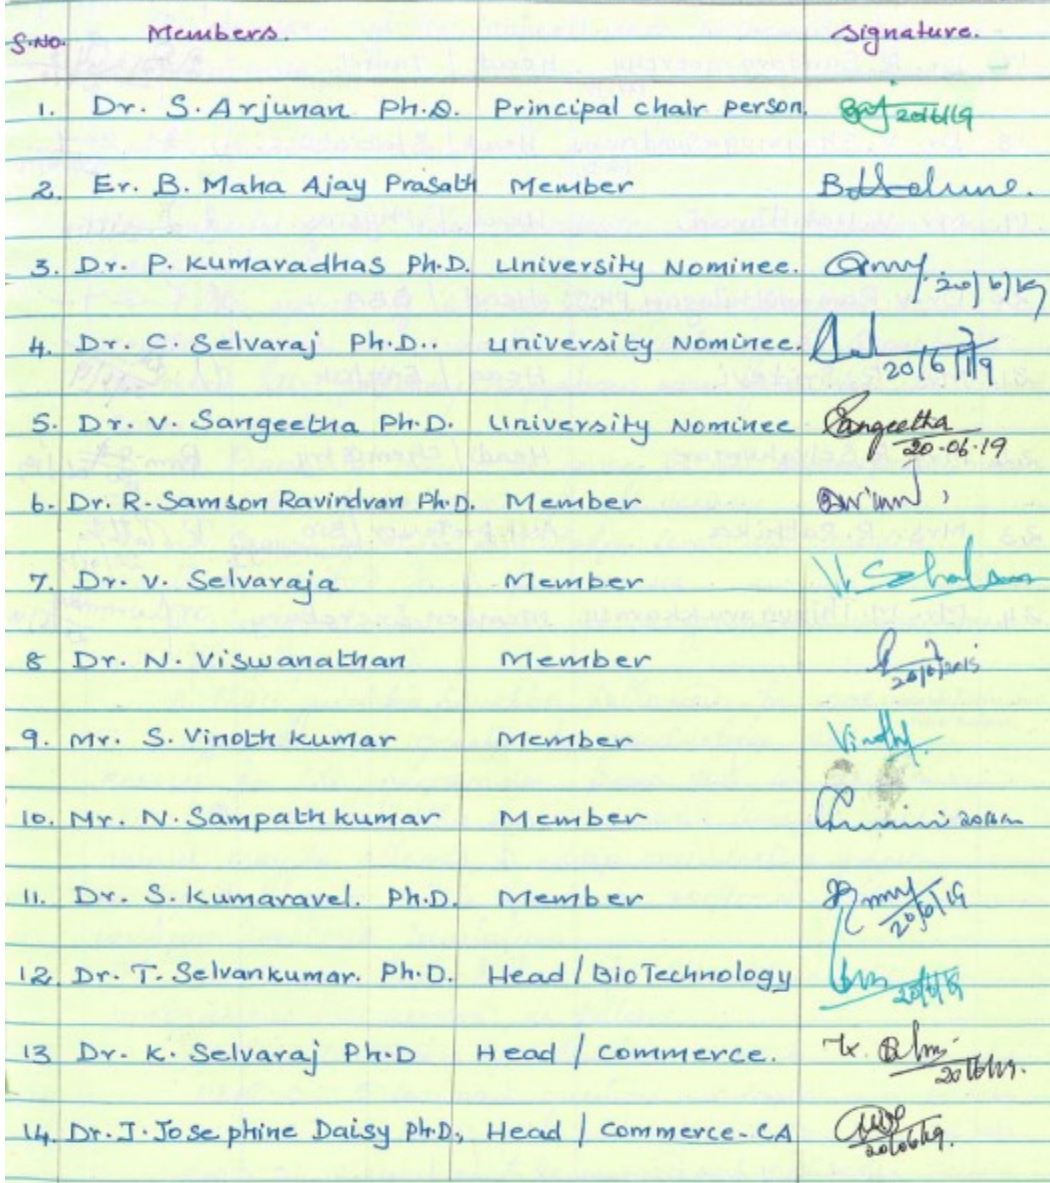 S.No. Members. Signature.
1. Dr. S. Arjunan Ph.D. Principal chair person. 20/6/19
2. Er. B. Maha Ajay Prasath Member
3. Dr. P. Kumaradhas Ph.D. University Nominee. 20/6/19
4. Dr. C. Selvaraj Ph.D.. University Nominee. 20/6/19
5. Dr. V. Sangeetha Ph.D. University Nominee Sangeetha
20-06-19
6. Dr. R. Samson Ravindran Ph.D. Member
7. Dr. V. Selvaraja Member
8 Dr. N. Viswanathan Member
9. Mr. S. Vinoth kumar Member
10. Mr. N. Sampath kumar Member
11. Dr. S. Kumaravel. Ph.D. Member 20/6/19
12. Dr. T. Selvankumar. Ph.D. Head / BioTechnology 20/6/19
13 Dr. K. Selvaraj Ph.D Head / Commerce. 20/6/19.
14. Dr. J. Josephine Daisy Ph.D., Head / Commerce-CA 20/06/19.